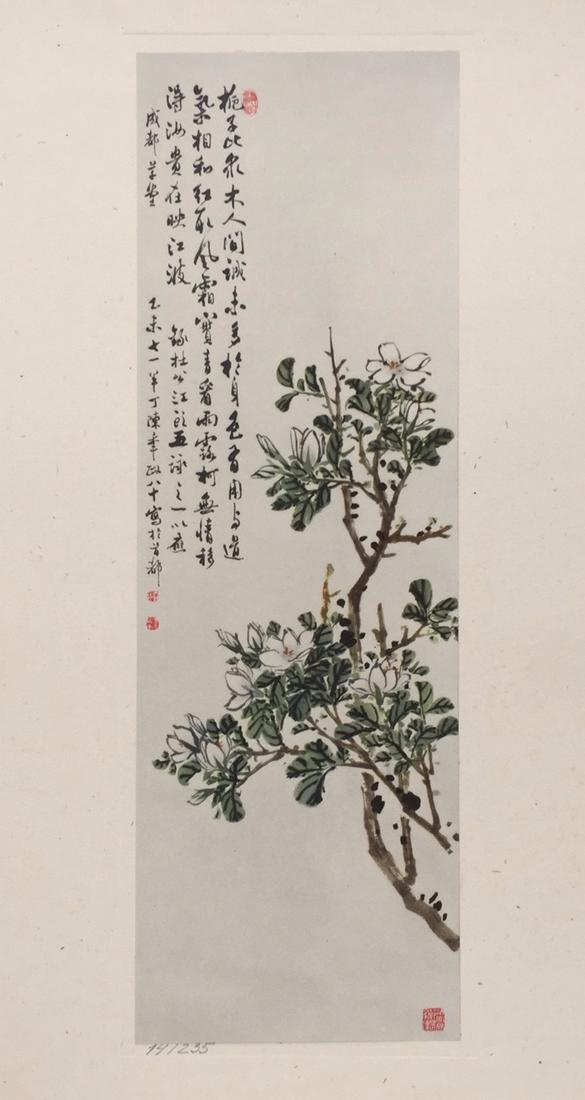 梔子比衆木人間誠未多於身色有用与道
氣相和紅取風霜實青看雨露柯無情移
得汝貴在映江波 錄杜公江頭五詠之一以應
成都草堂 乙未七一半丁陳年政八十寫於首都
14/235